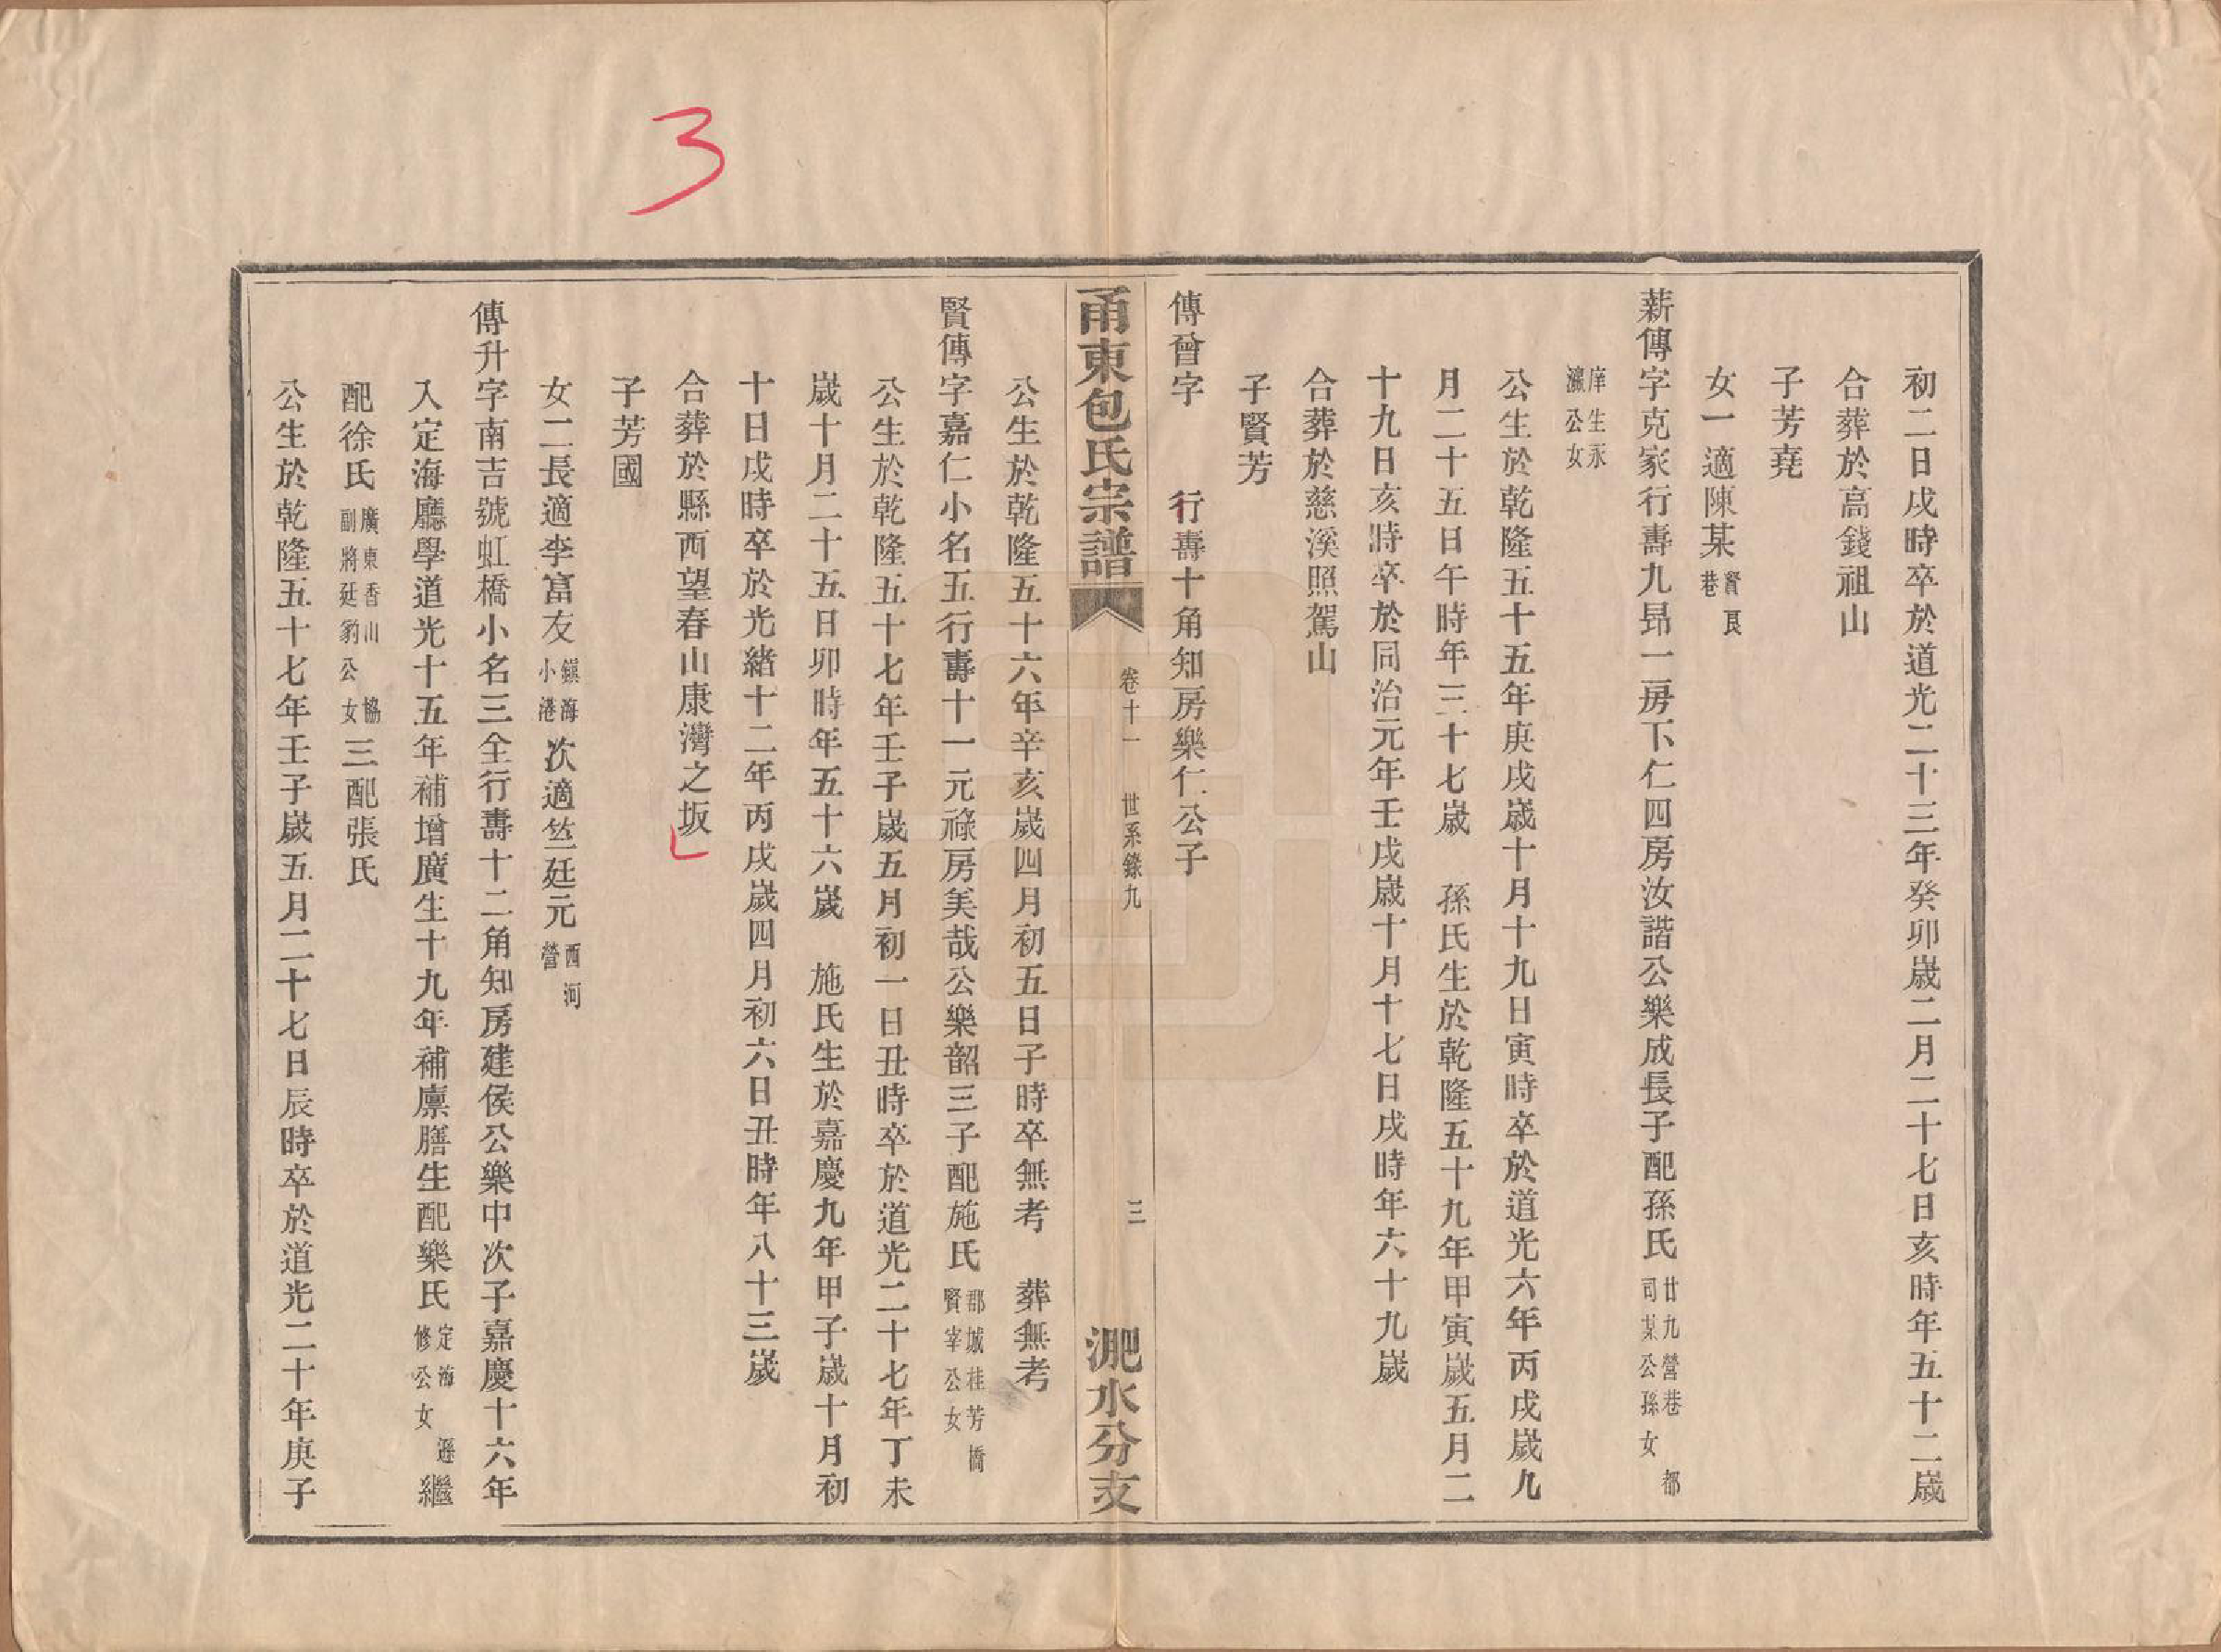 3
初二日戌時卒於道光二十三年癸卯歲二月二十七日亥時年五十二歲
合葬於高錢祖山
子芳堯
女一適陳某賢良巷
薪傳字克家行壽九昻一房下仁四房汝諧公樂成長子配孫氏廿九營巷都司某公孫女
庠生永瀛公女
公生於乾隆五十五年庚戌歲十月十九日寅時卒於道光六年丙戌歲九
月二十五日午時年三十七歲 孫氏生於乾隆五十九年甲寅歲五月二
十九日亥時卒於同治元年壬戌歲十月十七日戌時年六十九歲
合葬於慈溪照駕山
子賢芳
傳曾字 行壽十角知房樂仁公子
甬東包氏宗譜 卷十一 世系錄九 三 淝水分支
公生於乾隆五十六年辛亥歲四月初五日子時卒無考 葬無考
賢傳字嘉仁小名五行壽十一元祿房美哉公樂韶三子配施氏郡城桂芳橋賢宰公女
公生於乾隆五十七年壬子歲五月初一日丑時卒於道光二十七年丁未
歲十月二十五日卯時年五十六歲 施氏生於嘉慶九年甲子歲十月初
十日戌時卒於光緒十二年丙戌歲四月初六日丑時年八十三歲
合葬於縣西望春山康灣之坂
子芳國
女二長適李富友鎮海小港次適竺廷元西河營
傳升字南吉號虹橋小名三全行壽十二角知房建侯公樂中次子嘉慶十六年
入定海廳學道光十五年補增廣生十九年補廩膳生配樂氏定海遜修公女繼
配徐氏廣東香山協副將廷豹公女三配張氏
公生於乾隆五十七年壬子歲五月二十七日辰時卒於道光二十年庚子